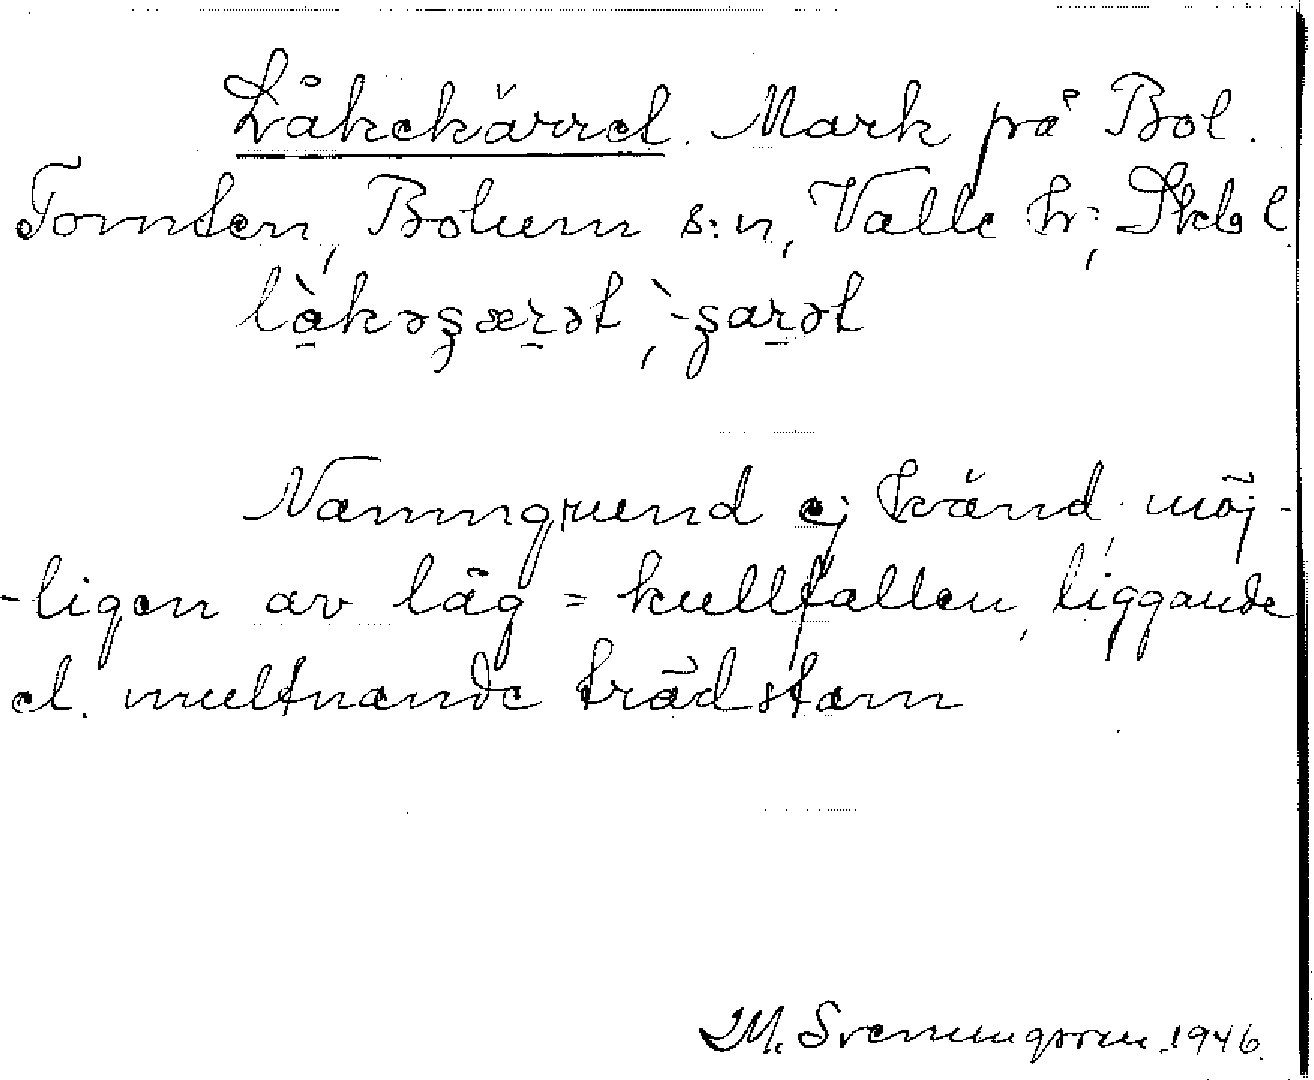 Låkekärret. Mark på Bol.
Tomten, Bolum s:n, Valle h:, Skbg l.
là̱kəʂær̠ət, `-ʂar̠ət
Namngrund ej känd, möj-
-ligen av låg = kullfallen, liggande
el. multnande trädstam
M. Svenungsson 1946.